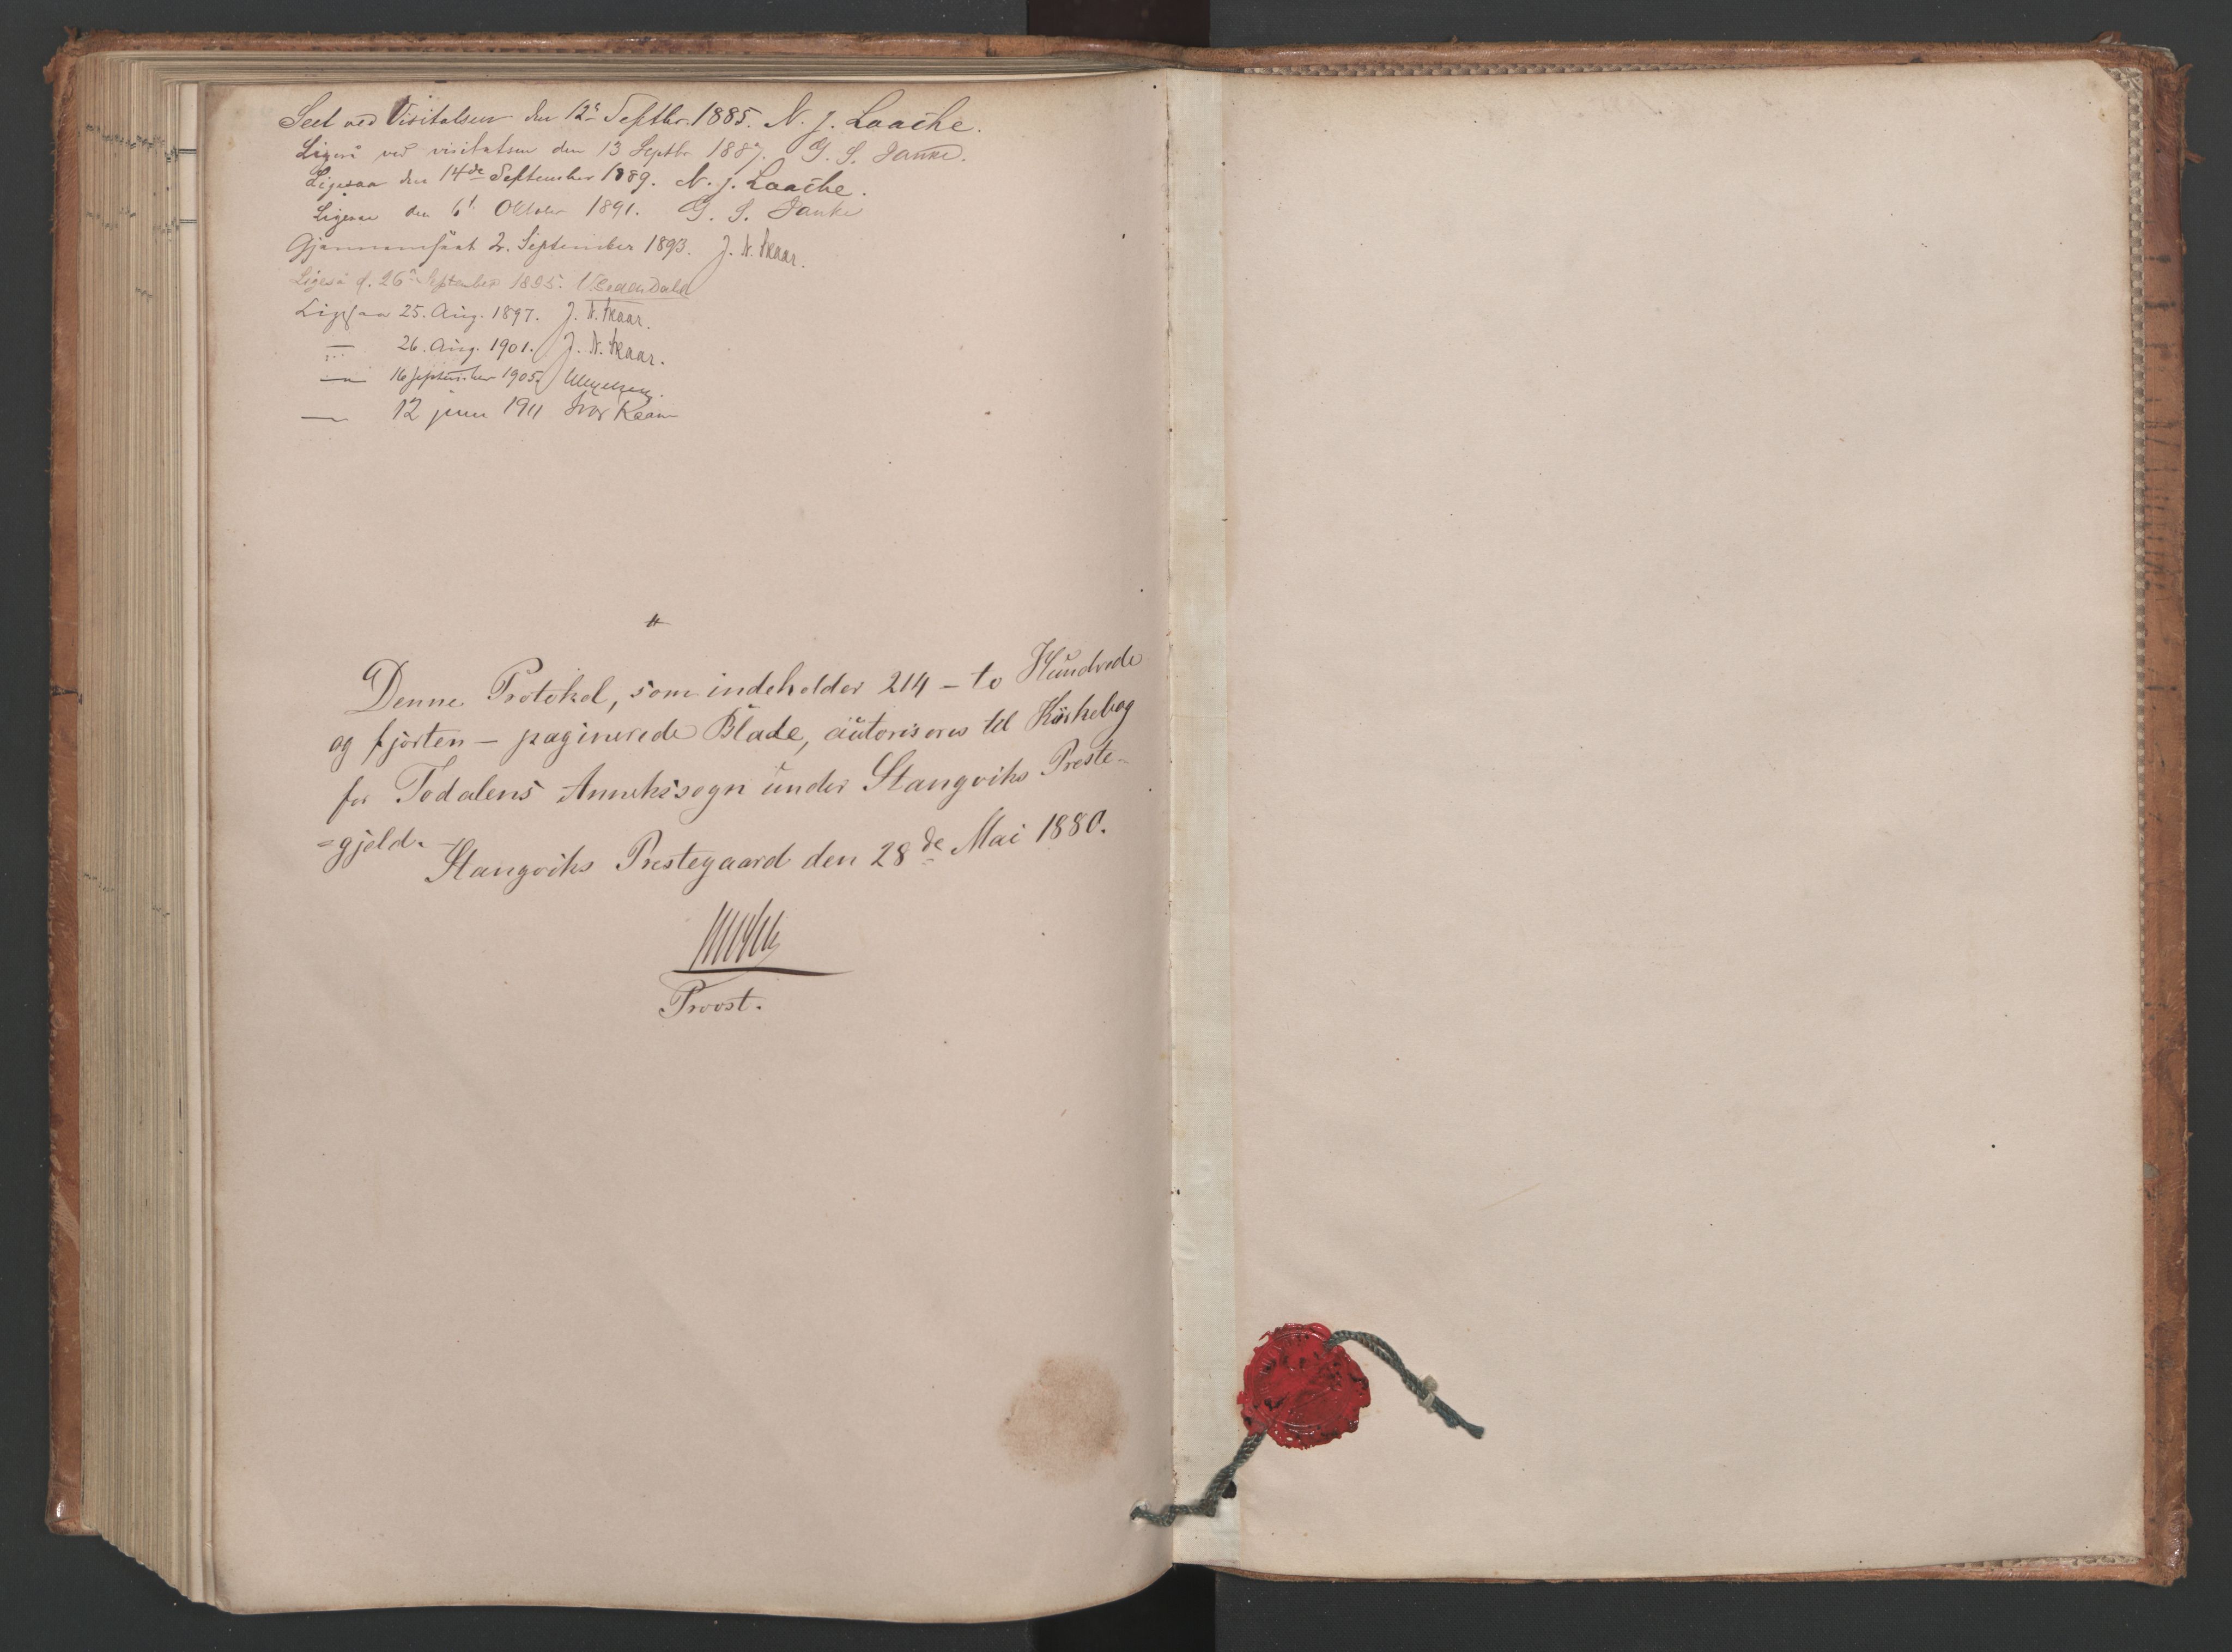 Seet ved Visitatsen den 12te Septbr. 1885. N. J. Laache.
Ligeså ved visitatsen den 13 Septbr 1887. G. S. Janke.
Ligesaa den 14de September 1889. N. J. Laache.
Ligesaa den 6t Oktober 1891. G. S. Janke
Gjennemseet 2. September 1893. J. N. Skaar.
Ligeså d. 26de September 1895.
Ligesaa 25. Aug. 1897. J. N. Skaar.
— 26. Aug. 1901. J. N. Skaar.
— 16 september 1905.
— 12 juni 1911
Denne Protokol, som indeholder 214 – to Hundrede
og fjorten – paginerede Blade, autoriseres til Kirkebog
for Todalens Annekssogn under Stangviks Preste-
=gjeld. –
Stangviks Prestegaard den 28de Mai 1880.
Provst.